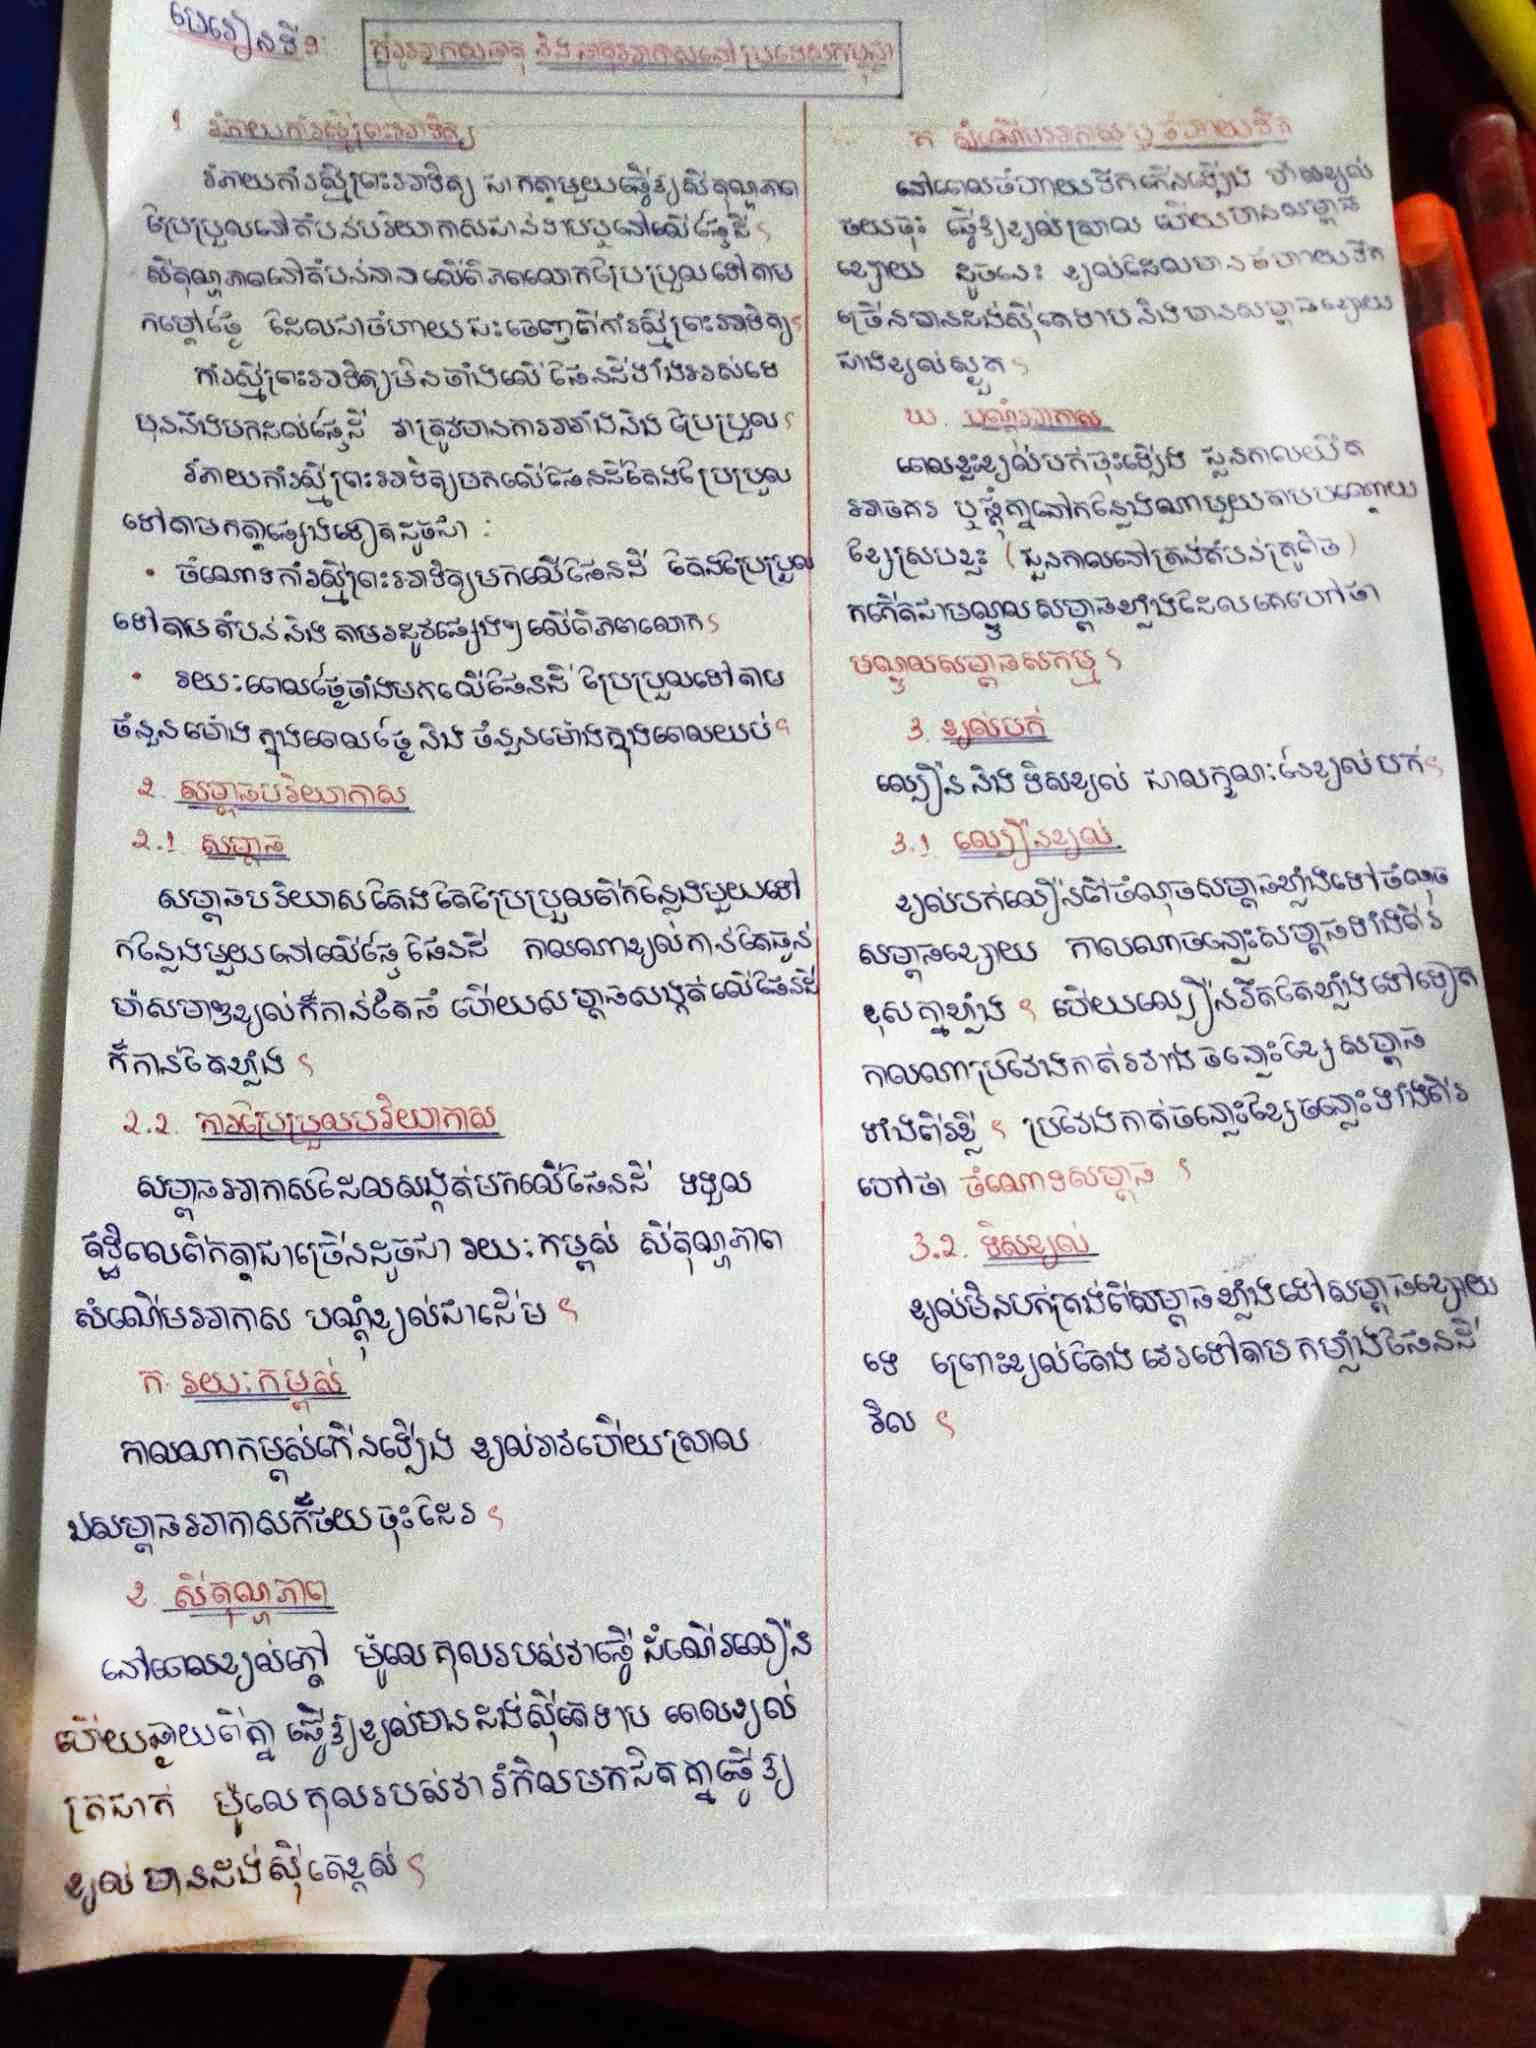 មេរៀនទី១:
គំរូអាកាសធាតុ និង ធាតុអាកាសនៅប្រទេសកម្ពុជា
1 រំភាយកាំរស្មីព្រះអាទិត្យ
រំភាយកាំរស្មីព្រះអាទិត្យ ជាកត្តាមួយធ្វើឱ្យសីតុណ្ហភាព
ប្រែប្រួលនៅតំបន់បរិយាកាសជាន់ទាបឬនៅលើផ្ទៃដី។
សីតុណ្ហភាពនៅតំបន់នានាលើពិភពលោកប្រែប្រួលទៅតាម
កម្ដៅថ្ងៃ ដែលជាចំហាយជះចេញពីកាំរស្មីព្រះអាទិត្យ។
កាំរស្មីព្រះអាទិត្យមិនចាំងលើផែនដីទាំងអស់ទេ
មុននឹងមកដល់ផ្ទៃដី វាត្រូវមានការរារាំងនិង ប្រែប្រួល។
រំភាយកាំរស្មីព្រះអាទិត្យមកលើផែនដីតែងប្រែប្រួល
ទៅតាមកត្តាផ្សេងទៀតដូចជា :
• ចំណោទកាំរស្មីព្រះអាទិត្យមកលើផែនដី តែងប្រែប្រួល
ទៅតាមតំបន់ និង តាមរដូវផ្សេងៗលើពិភពលោក។
• រយៈពេលថ្ងៃចាំងមកលើផែនដី ប្រែប្រួលទៅតាម
ចំនួនម៉ោង ក្នុងពេលថ្ងៃ និង ចំនួនម៉ោងក្នុងពេលយប់។
2. សម្ពាធបរិយាកាស
2.1 សម្ពាធ
សម្ពាធបរិយាសតែងតែប្រែប្រួលពីកន្លែងមួយទៅ
កន្លែងមួយនៅលើផ្ទៃផែនដី កាលណាខ្យល់កាន់តែធ្ងន់
ម៉ាសមាឌខ្យល់ក៏កាន់តែធំ ហើយសម្ពាធសង្កត់លើផែនដី
ក៏កាន់តែខ្លាំង ។
2.2. ការប្រែប្រួលបរិយាកាស
សម្ពាធអាកាសដែលសង្កត់មកលើផែនដី ទទួល
ឥទ្ធិពលពីកត្តាជាច្រើនដូចជា រយៈកម្ពស់ សីតុណ្ហភាព
សំណើមអាកាស បណ្ដុំខ្យល់ជាដើម ។
ក. រយៈកម្ពស់
កាលណាកម្ពស់កើនឡើង ខ្យល់រាវហើយស្រាល
ឯសម្ពាធអាកាសក៏ថយចុះដែរ ។
ខ. សីតុណ្ហភាព
នៅពេលខ្យល់ក្ដៅ ម៉ូលេគុលរបស់វាធ្វើដំណើរលឿន
ហើយឆ្ងាយពីគ្នា ធ្វើឱ្យខ្យល់មានដង់ស៊ីតេទាប ពេលខ្យល់
ត្រជាក់ ម៉ូលេគុលរបស់វា រំកិលមកជិតគ្នាធ្វើឱ្យ
ខ្យល់មានដង់ស៊ីតេខ្ពស់។
គ សំណើមអាកាស ឬ ចំហាយទឹក
នៅពេលចំហាយទឹកកើនឡើង ម៉ាសខ្យល់
ថយចុះ ធ្វើឱ្យខ្យល់ស្រាល ហើយមានសម្ពាធ
ខ្សោយ ដូចនេះ ខ្យល់ដែលមានចំហាយទឹក
ច្រើនមានដង់ស៊ីតេទាបនិងមានសម្ពាធខ្សោយ
ជាងខ្យល់ស្ងួត។
ឃ. បណ្ដុំអាកាស
ពេលខ្លះខ្យល់បក់ចុះឡើង ជួនកាលយឺត
អាចករ ឬផ្ដុំគ្នានៅកន្លែងណាមួយតាមបណ្ដោយ
ខ្សែស្របខ្លះ (ជួនកាលនៅត្រង់តំបន់ត្រូពិច)
កកើតជាមណ្ឌលសម្ពាធខ្លាំងដែលគេហៅថា
មណ្ឌលសម្ពាធសកម្ម ។
3. ខ្យល់បក់
ល្បឿន និង ទិសខ្យល់ ជាលក្ខណៈនៃខ្យល់បក់។
3.1 ល្បឿនខ្យល់
ខ្យល់បក់លឿនពីចំណុចសម្ពាធខ្លាំងទៅចំណុច
សម្ពាធខ្សោយ កាលណាចន្លោះសម្ពាធទាំងពីរ
ខុសគ្នាខ្លាំង ។ ហើយល្បឿនរឹតតែខ្លាំងទៅទៀត
កាលណាប្រវែងកាត់រវាងចន្លោះខ្សែសម្ពាធ
ទាំងពីរខ្លី ។ ប្រវែងកាត់ចន្លោះខ្សែចន្លោះទាំងពីរ
ហៅថា ចំណោទសម្ពាធ ។
3.2. ទិសខ្យល់
ខ្យល់មិនបក់ត្រង់ពីសម្ពាធខ្លាំងទៅសម្ពាធខ្សោយ
ទេ ព្រោះខ្យល់តែងវេរទៅតាមកម្លាំងផែនដី
វិល ។